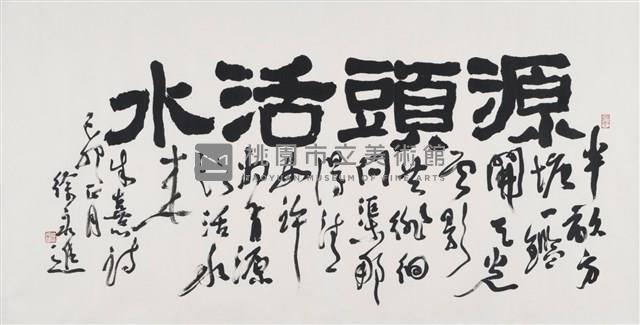 源頭活水
半畝方
塘一鑑
開天光
雲影
共徘徊
問渠那
得清
如許
為有源
頭活水
來
朱熹詩
己卯正月
徐永進
桃園市立美術館
TAOYUAN MUSEUM OF FINE ARTS